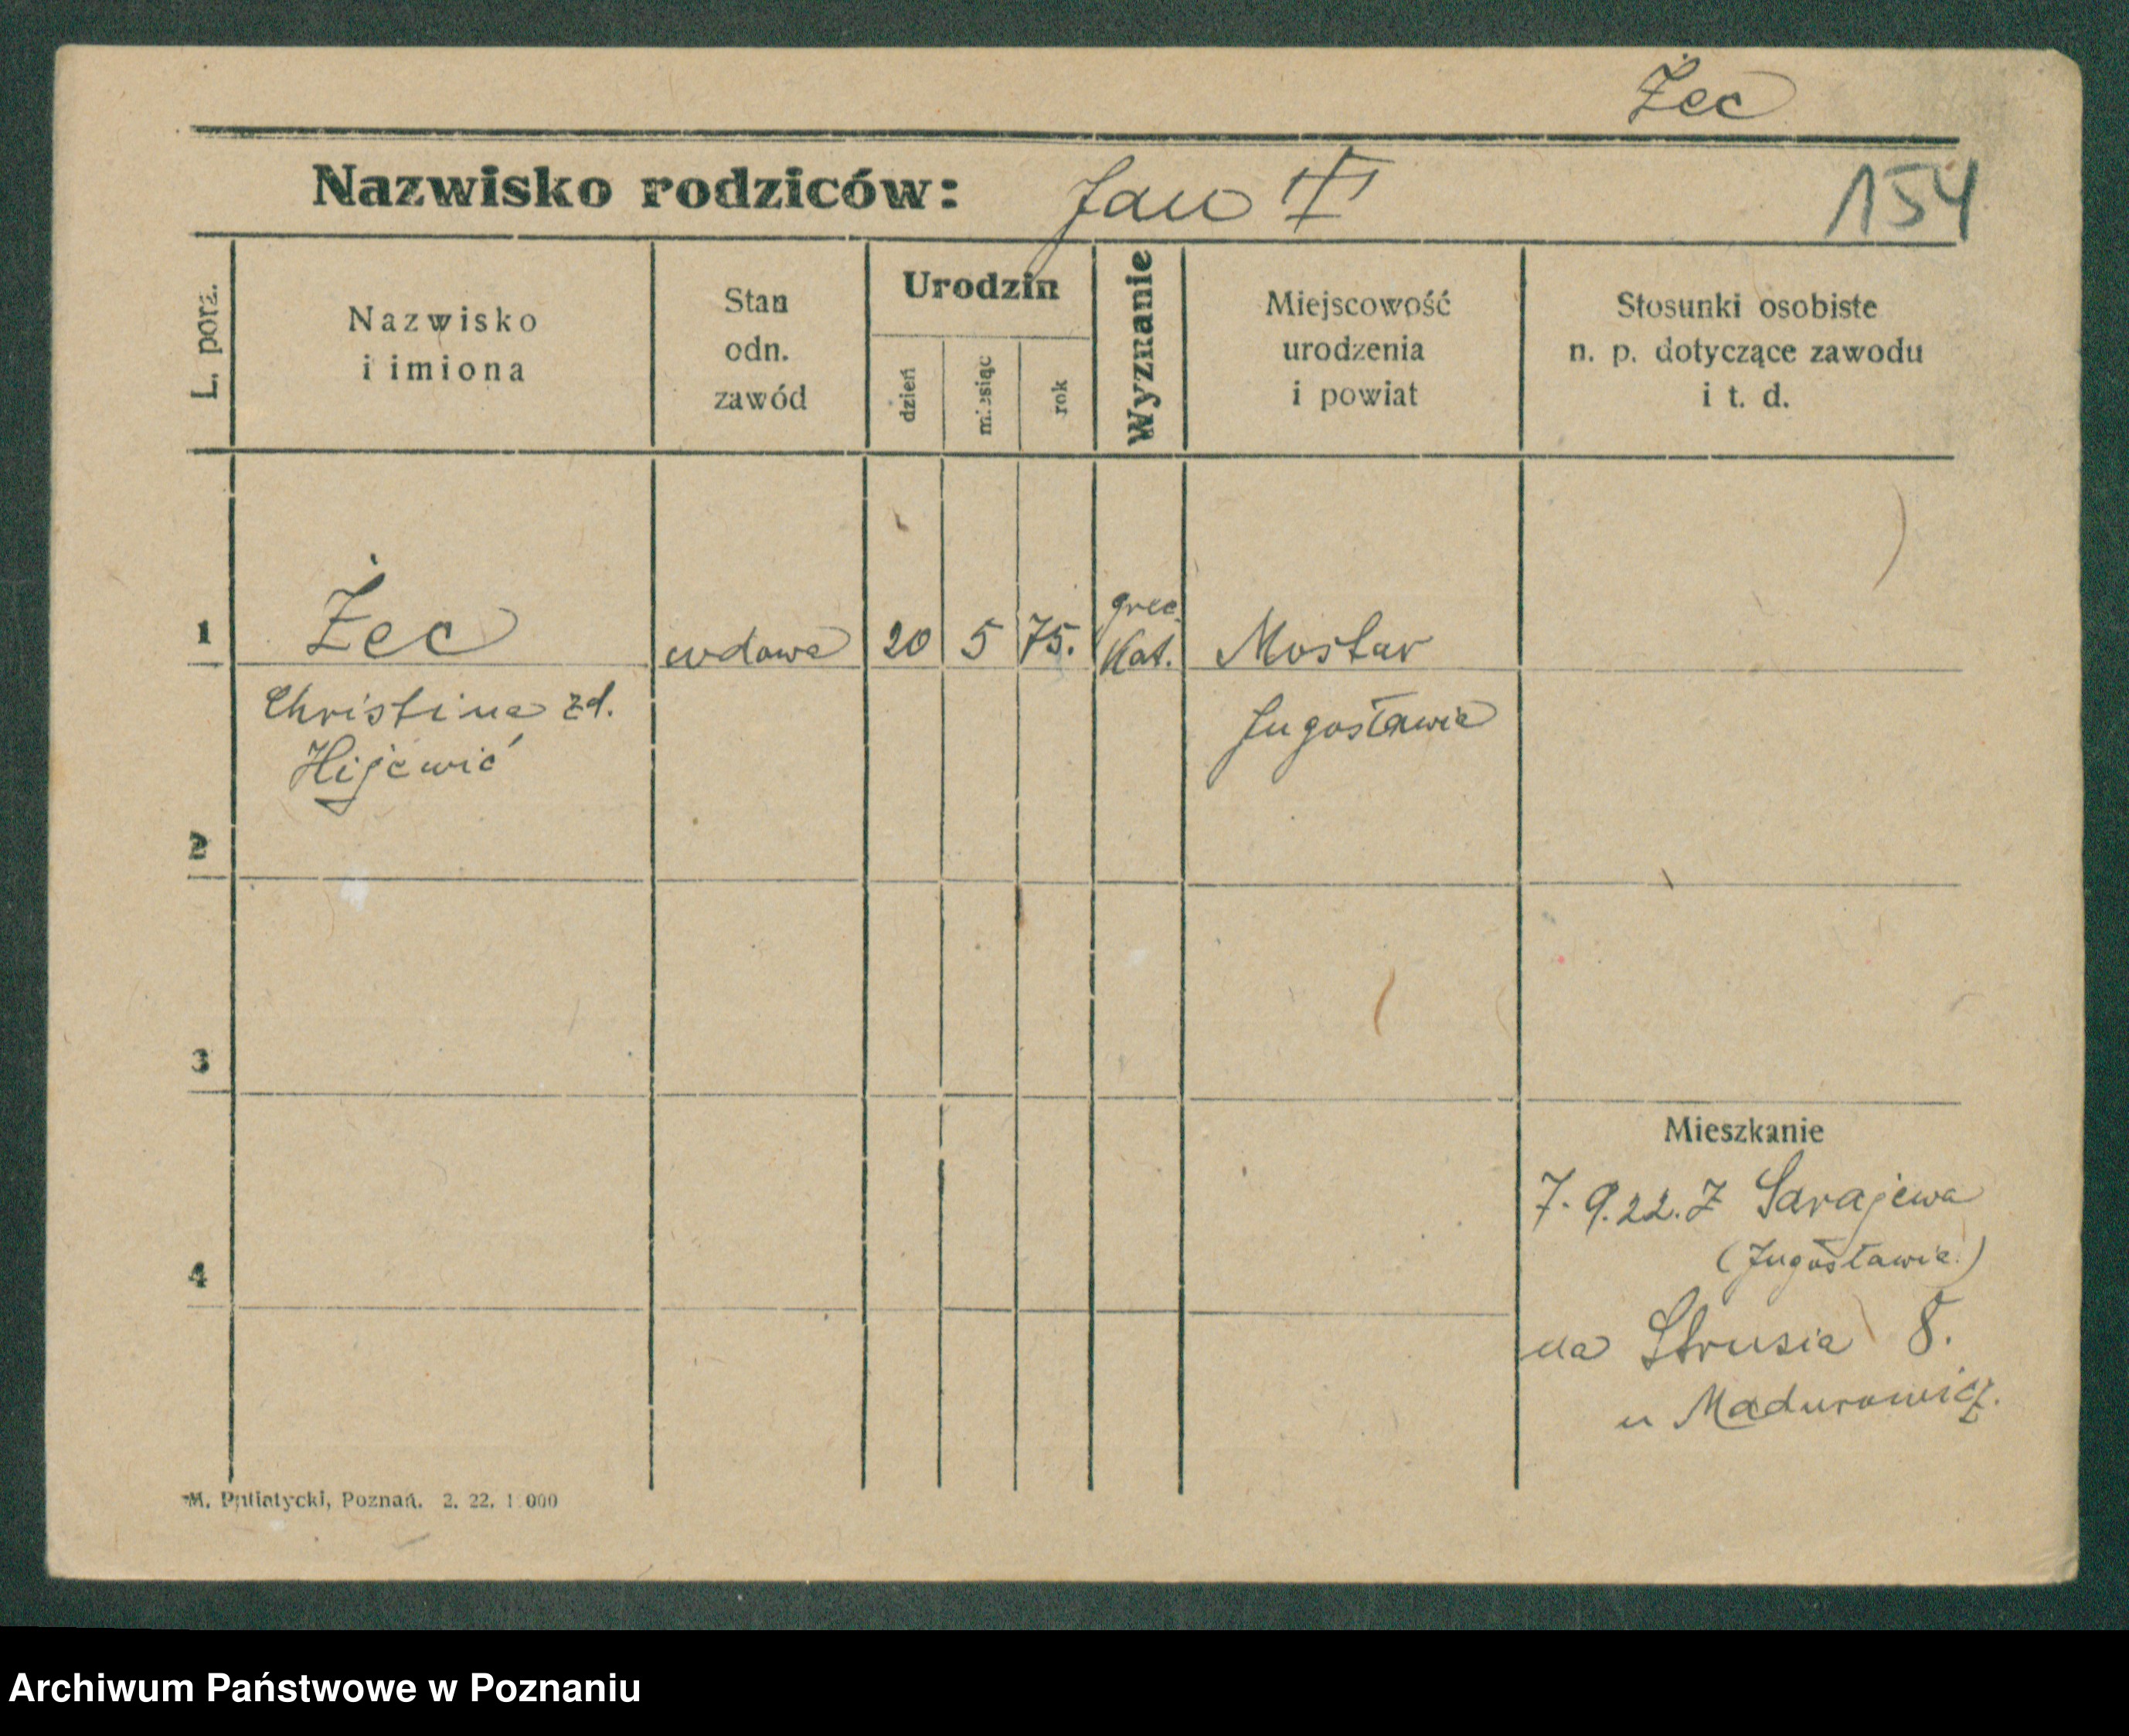 Żec
Nazwisko rodziców: Jan
154
L. porz.
Nazwisko
i imiona
Stan
odn.
zawód
Urodzin
dzień
miesiąc
rok
Wyznanie
Miejscowość
urodzenia
i powiat
Stosunki osobiste
n. p. dotyczące zawodu
i t. d.
1
Żec
wdowa
20
5
75.
grec.
Kat.
Mostar
Christina zd.
Jugosławia
Hijewić
2
3
Mieszkanie
7. 9. 22. Z Sarajewa
(Jugosławia.)
4
na Strusia 8.
u Madurowicz.
M. Putiatycki, Poznań. 2. 22. 1 000
Archiwum Państwowe w Poznaniu